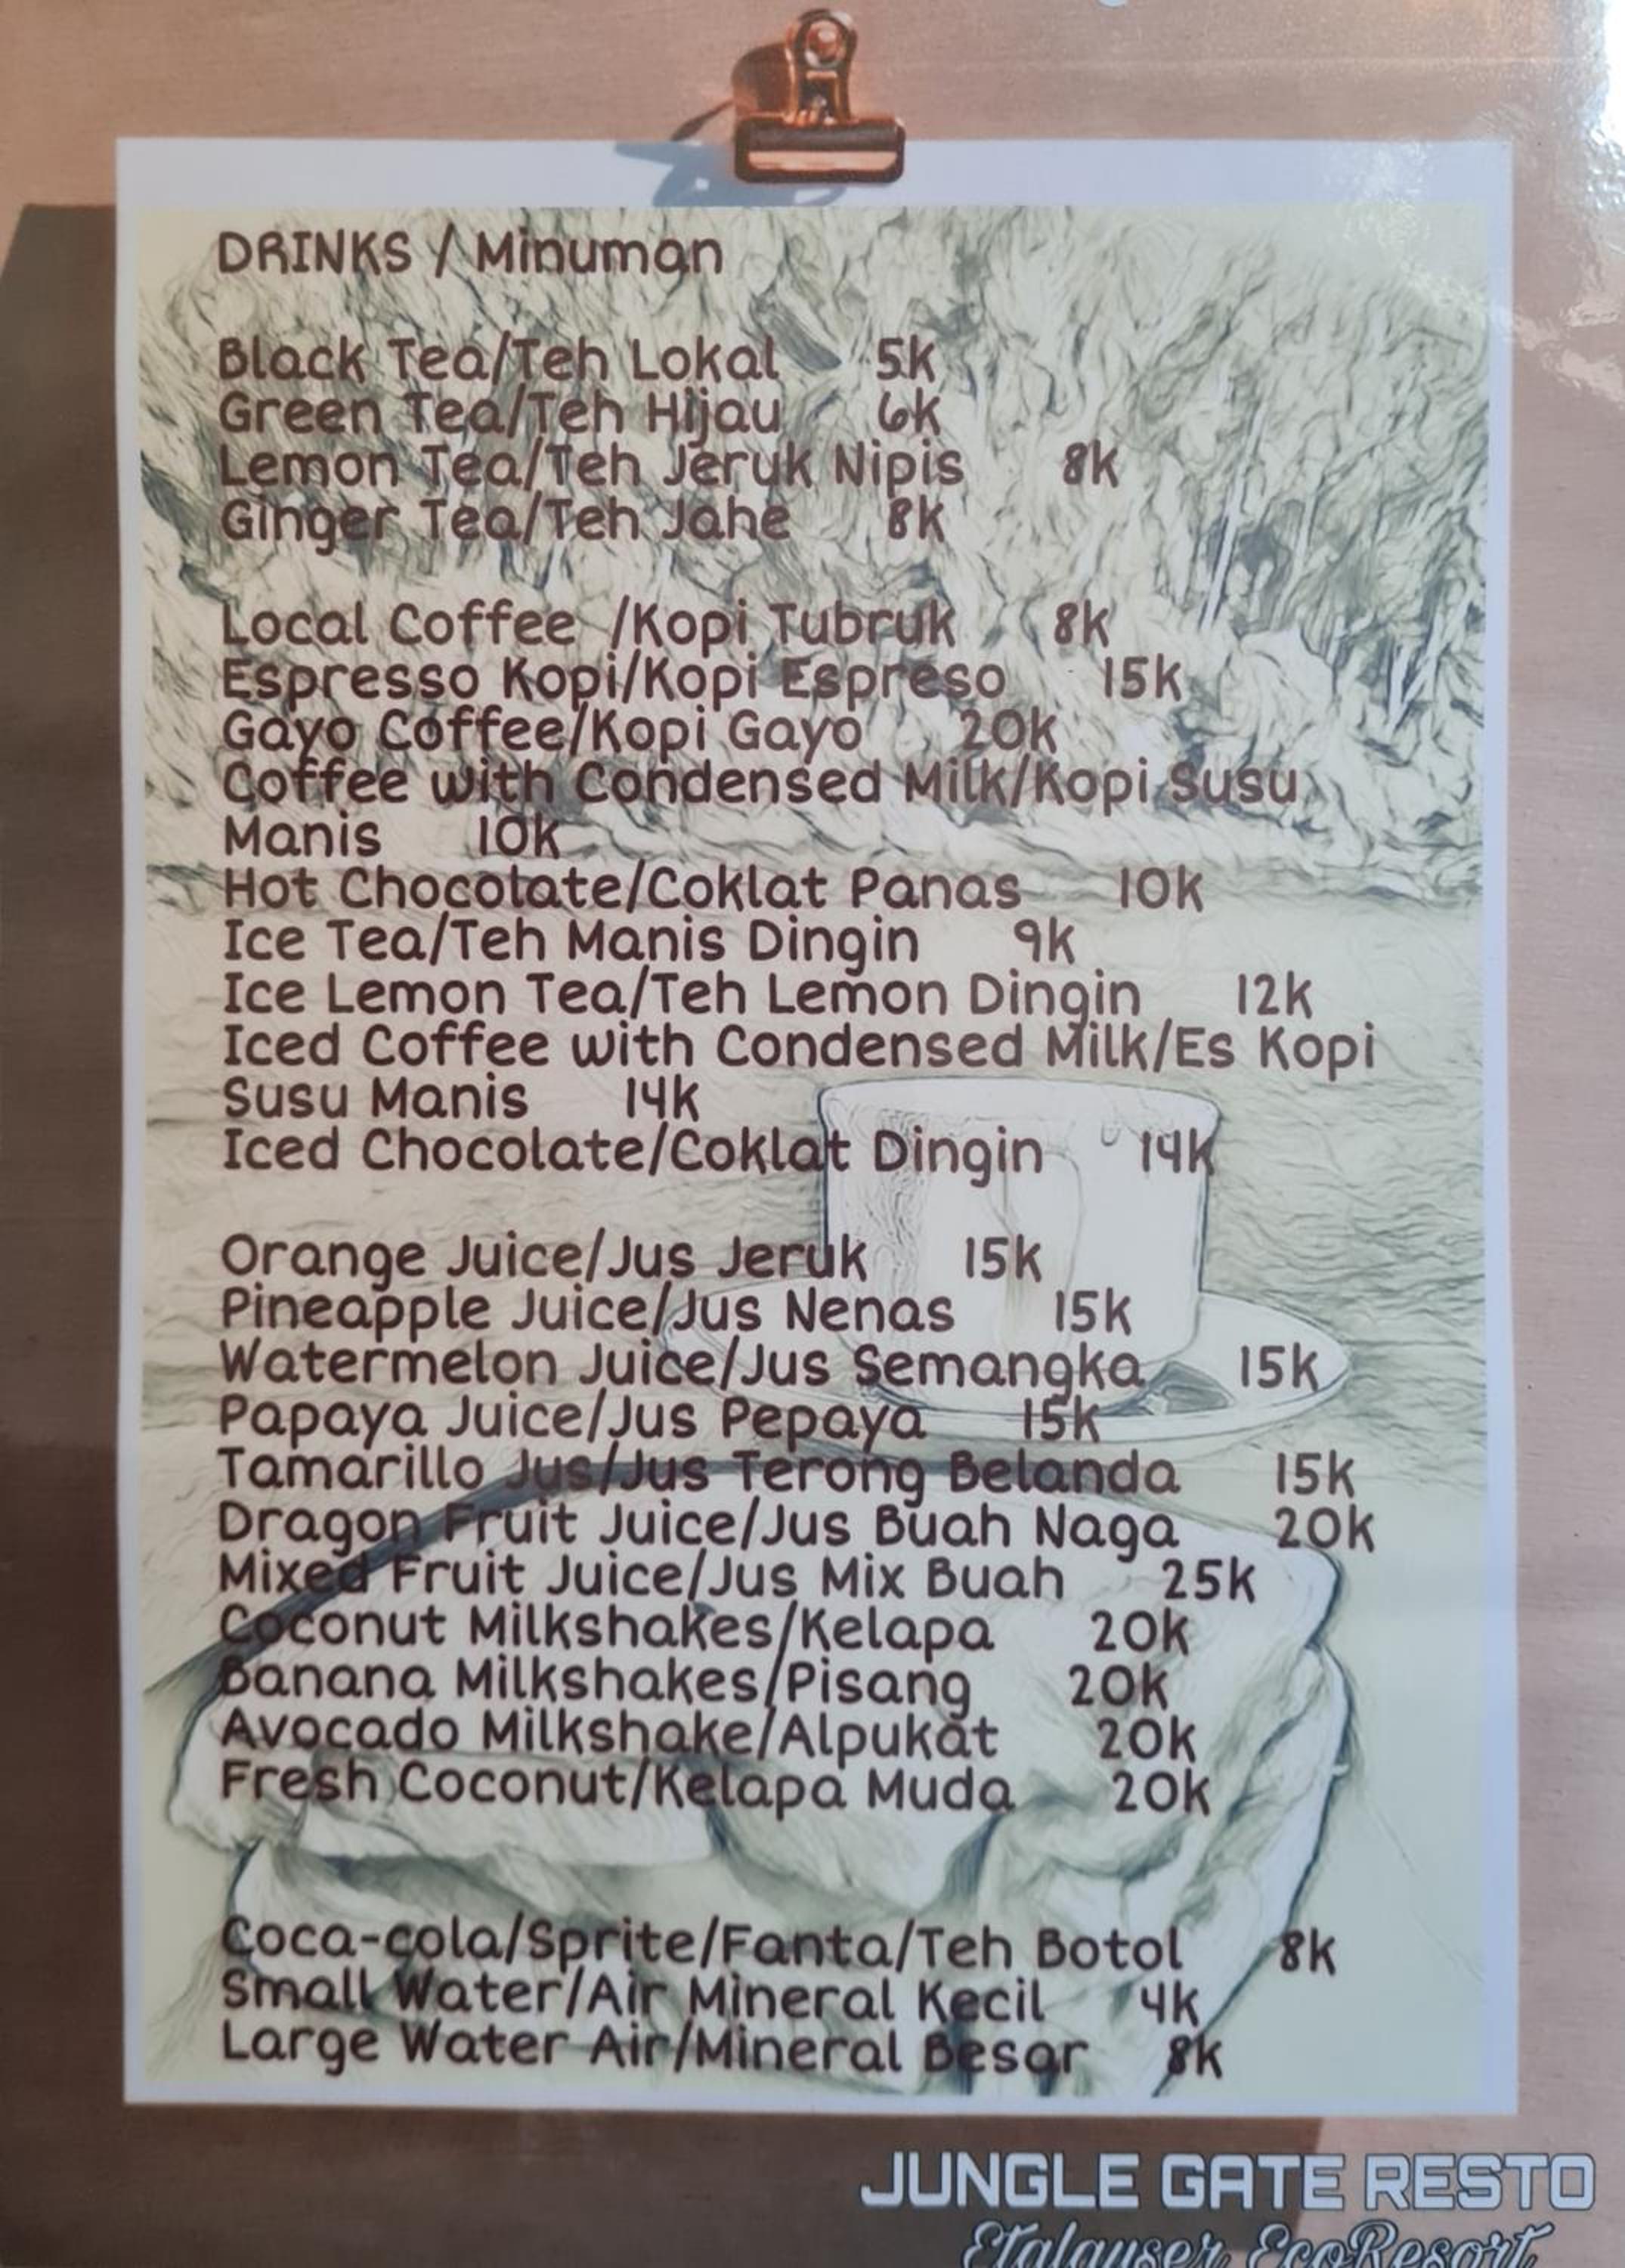 DRINKS / Minuman
Black Tea/Teh Lokal 5k
Green Tea/Teh Hijau 6k
Lemon Tea/Teh Jeruk Nipis 8k
Ginger Tea/Teh Jahe 8k
Local Coffee /Kopi Tubruk 8k
Espresso Kopi/Kopi Espreso 15k
Gayo Coffee/Kopi Gayo 20k
Coffee with Condensed Milk/Kopi Susu
Manis 10k
Hot Chocolate/Coklat Panas 10k
Ice Tea/Teh Manis Dingin 9k
Ice Lemon Tea/Teh Lemon Dingin 12k
Iced Coffee with Condensed Milk/Es Kopi
Susu Manis 14k
Iced Chocolate/Coklat Dingin 14k
Orange Juice/Jus Jeruk 15k
Pineapple Juice/Jus Nenas 15k
Watermelon Juice/Jus Semangka 15k
Papaya Juice/Jus Pepaya 15k
Tamarillo Jus/Jus Terong Belanda 15k
Dragon Fruit Juice/Jus Buah Naga 20k
Mixed Fruit Juice/Jus Mix Buah 25k
Coconut Milkshakes/Kelapa 20k
Banana Milkshakes/Pisang 20k
Avocado Milkshake/Alpukat 20k
Fresh Coconut/Kelapa Muda 20k
Coca-cola/Sprite/Fanta/Teh Botol 8k
Small Water/Air Mineral Kecil 4k
Large Water Air/Mineral Besar 8k
JUNGLE GATE RESTO
EcoResort